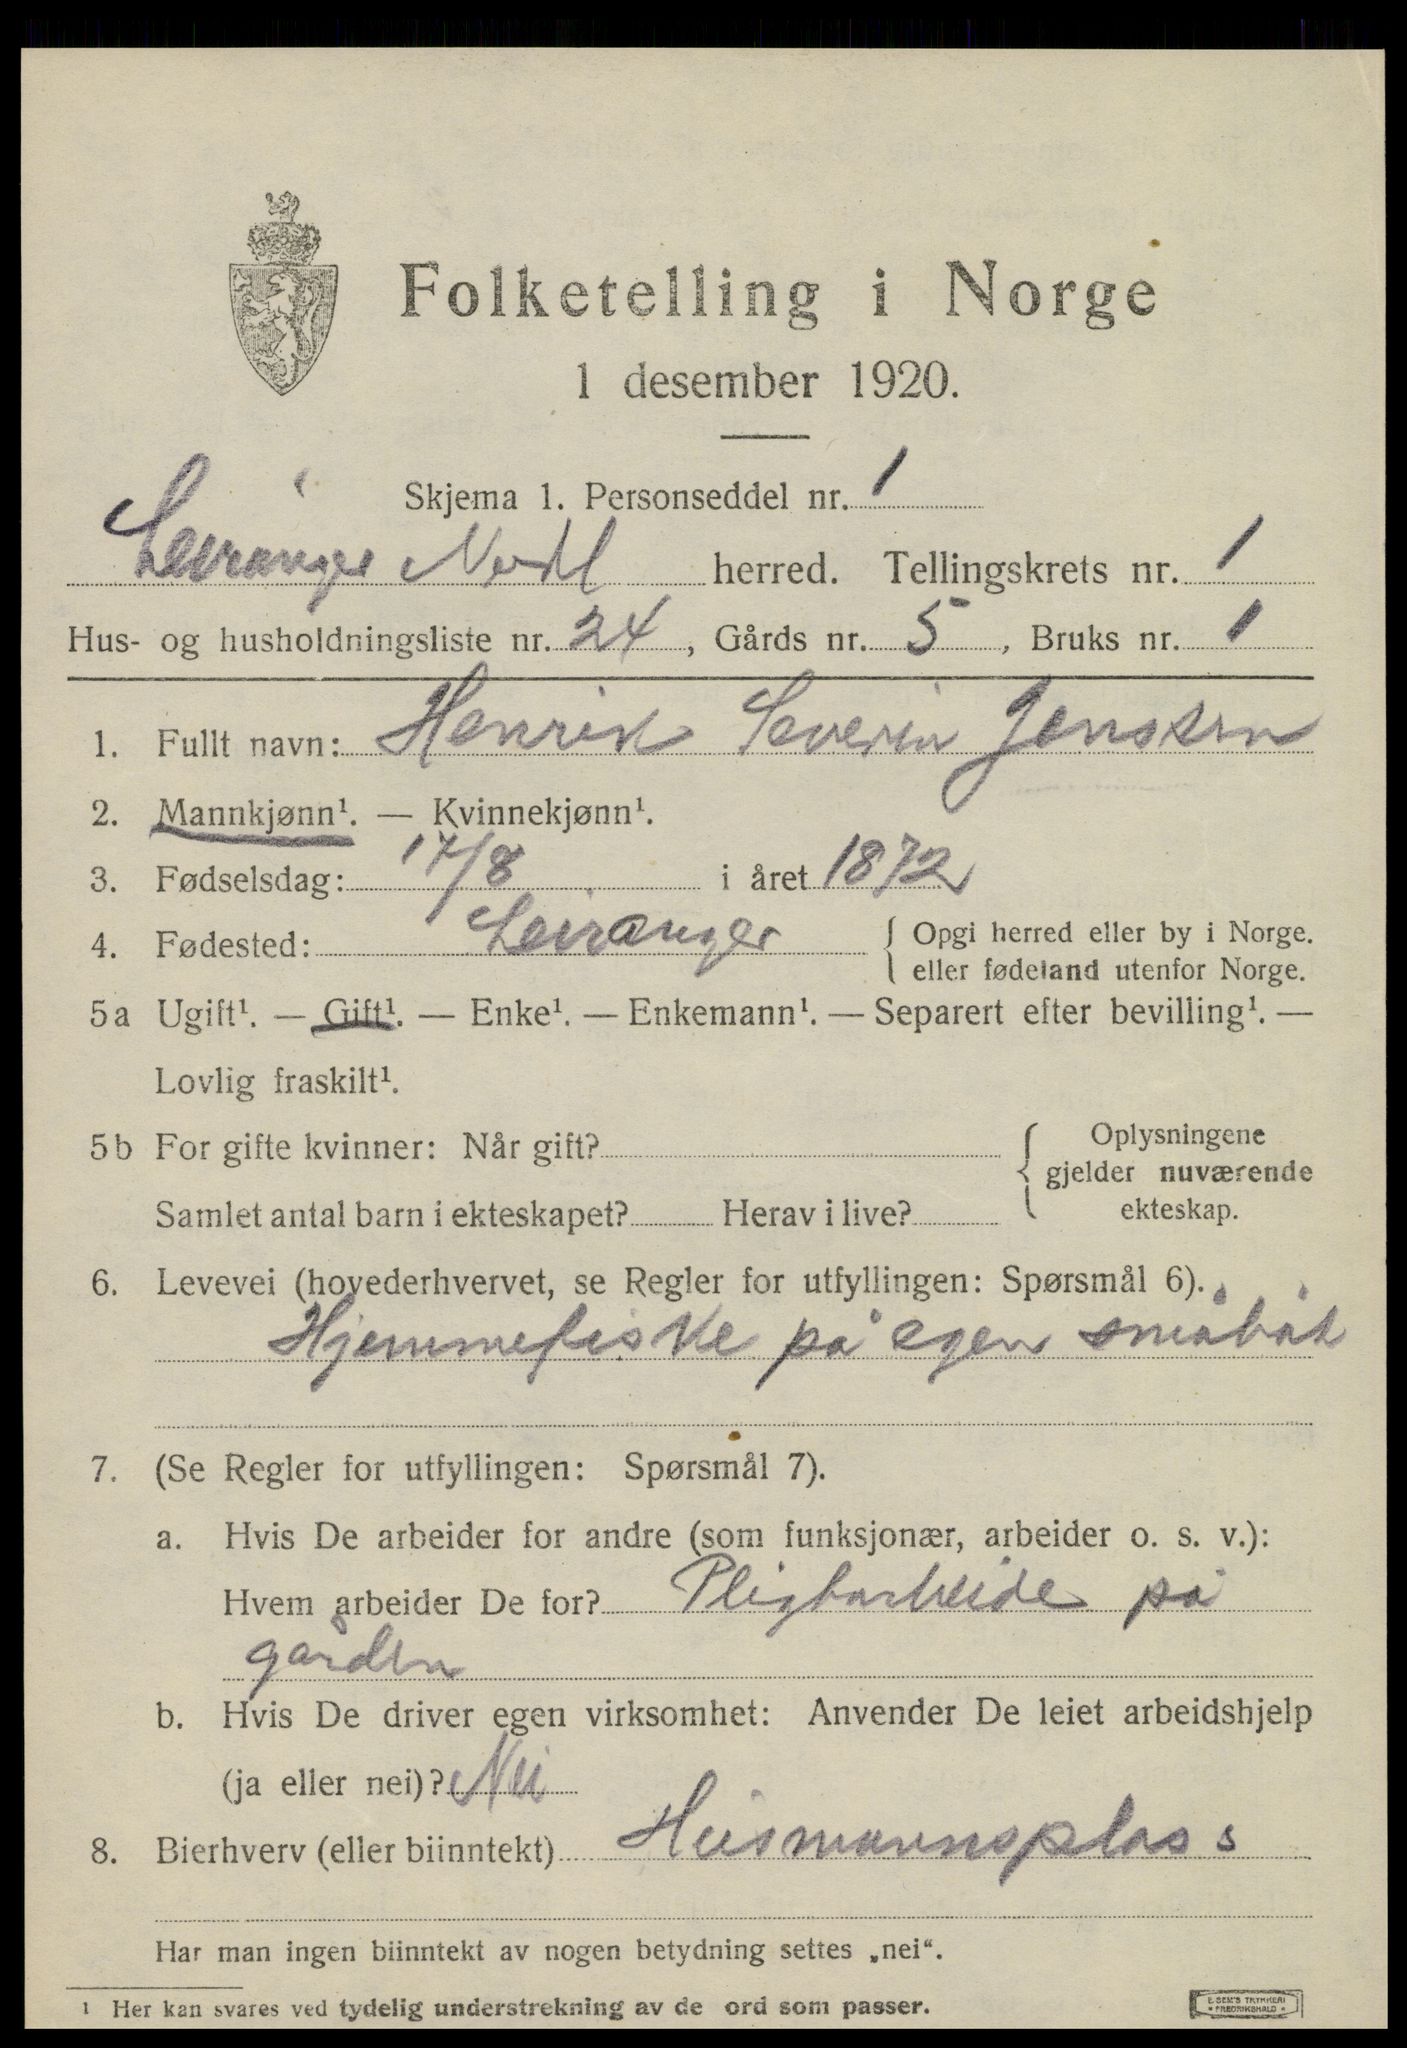 Folketelling i Norge
1 desember 1920.
Skjema 1. Personseddel nr. 1
Leiranger Nordl herred. Tellingskrets nr. 1
Hus- og husholdningsliste nr. 24, Gårds nr. 5, Bruks nr. 1
1. Fullt navn: Henrik Severin Jenssen
2. Mannkjønn¹. — Kvinnekjønn¹.
3. Fødselsdag: 17/8 i året 1872
4. Fødested: Leiranger { Opgi herred eller by i Norge.
eller fødeland utenfor Norge.
5a Ugift¹. — Gift¹. — Enke¹. — Enkemann¹. — Separert efter bevilling¹. —
Lovlig fraskilt¹.
5b For gifte kvinner: Når gift? { Oplysningene
gjelder nuværende
Samlet antal barn i ekteskapet? Herav i live? ekteskap.
6. Levevei (hovederhvervet, se Regler for utfyllingen: Spørsmål 6).
Hjemmefiske på egen småbåt
7. (Se Regler for utfyllingen: Spørsmål 7).
a. Hvis De arbeider for andre (som funksjonær, arbeider o. s. v.):
Hvem arbeider De for? Pligtarbeide på
gården
b. Hvis De driver egen virksomhet: Anvender De leiet arbeidshjelp
(ja eller nei)? Nei
8. Bierhverv (eller biinntekt) Husmannsplass
Har man ingen biinntekt av nogen betydning settes „nei“.
¹ Her kan svares ved tydelig understrekning av de ord som passer.
E. SEM'S TRYKKERI
FREDRIKSHALD